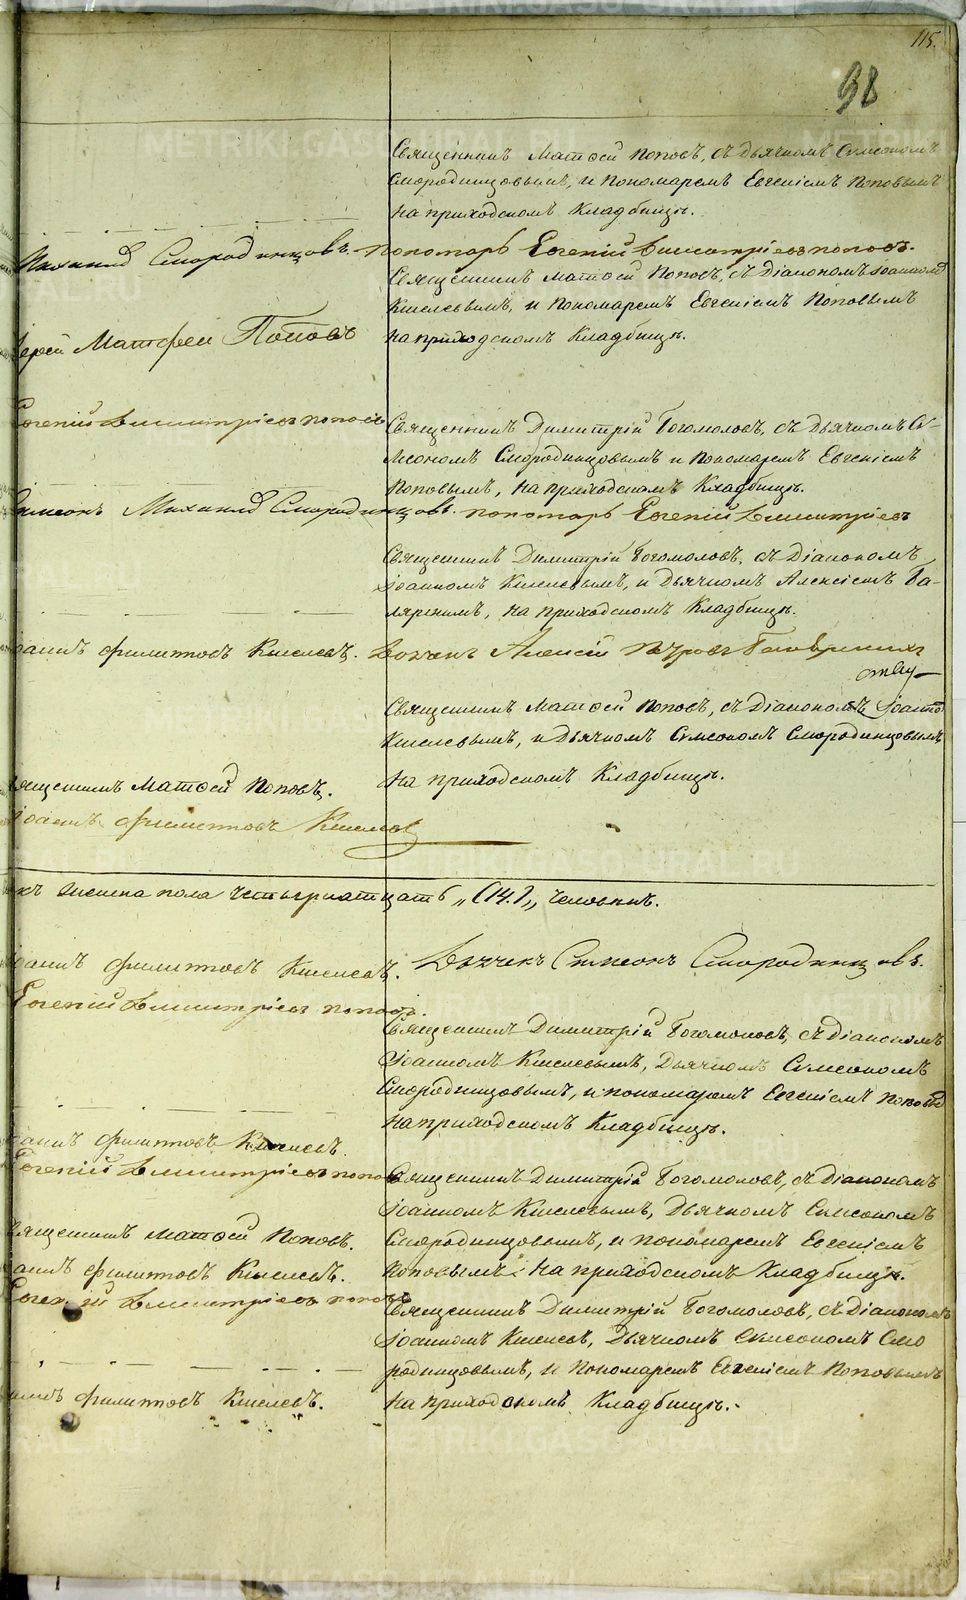 115.
98
Священникъ Матѳей Поповъ, съ Дьячкомъ Симеономъ
Смородинцовымъ, и Пономаремъ Евгеніемъ Поповымъ
на приходскомъ Кладбищѣ.
Михаилъ Смородинцовъ. пономарь Евгений Димитріевъ поповъ.
Священникъ Матѳей Поповъ, съ Діакономъ Іоанномъ
Киселевымъ, и Пономаремъ Евгеніемъ Поповымъ
на приходскомъ Кладбищѣ.
іерей Матфей Поповъ
Евгений Димитріевъ поповъ
Священникъ Димитрій Богомоловъ, съ Дьячкомъ Си-
меономъ Смородинцовымъ и Пономаремъ Евгеніемъ
Поповымъ, на приходскомъ Кладбищѣ.
Симеонъ Михаилъ Смородинцовъ. пономарь Евгений Димитріевъ
Священникъ Димитрій Богомоловъ, съ Діакономъ
Іоанномъ Киселевымъ, и Дьячкомъ Алексіемъ
на приходскомъ Кладбищѣ.
оаннъ Филипповъ Киселевъ. Дьячекъ Алексій Петровъ
Священникъ Матѳей Поповъ, съ Діакономъ Іоанно
Киселевымъ, и Дьячкомъ Симеономъ Смородинцовымъ
на приходскомъ Кладбищѣ.
вященникъ Матѳей Поповъ.
Іоаннъ Филипповъ Киселевъ
женска пола четырнатцать „(14.)„ человѣкъ.
оаннъ Филипповъ Киселевъ. Дьячекъ Симеонъ Смородинцовъ.
Евгений Димитріевъ поповъ.
Священникъ Димитрій Богомоловъ, съ Діакономъ
Іоанномъ Киселевымъ, Дьячкомъ Симеономъ
Смородинцовымъ, и пономаремъ Евгеніемъ Поповы
на приходскомъ Кладбищѣ.
оаннъ Филипповъ Киселевъ.
Евгений Димитріевъ поповъ
Священникъ Димитрій Богомоловъ, съ Діакономъ
Іоанномъ Киселевымъ, Дьячкомъ Симеономъ
вященникъ Матѳей Поповъ.
Смородинцовымъ, и пономаремъ Евгеніемъ
оаннъ Филипповъ Киселевъ.
Поповымъ, на приходскомъ Кладбищѣ.
Евгений Димитріевъ поповъ
Священникъ Димитрій Богомоловъ, съ Діакономъ
Іоанномъ Киселевъ, Дьячкомъ Симеономъ Смо
родинцовымъ, и Пономаремъ Евгеніемъ Поповымъ
аннъ Филипповъ Киселевъ.
на приходскомъ Кладбищѣ.
METRIKI.GASO-URAL.RU